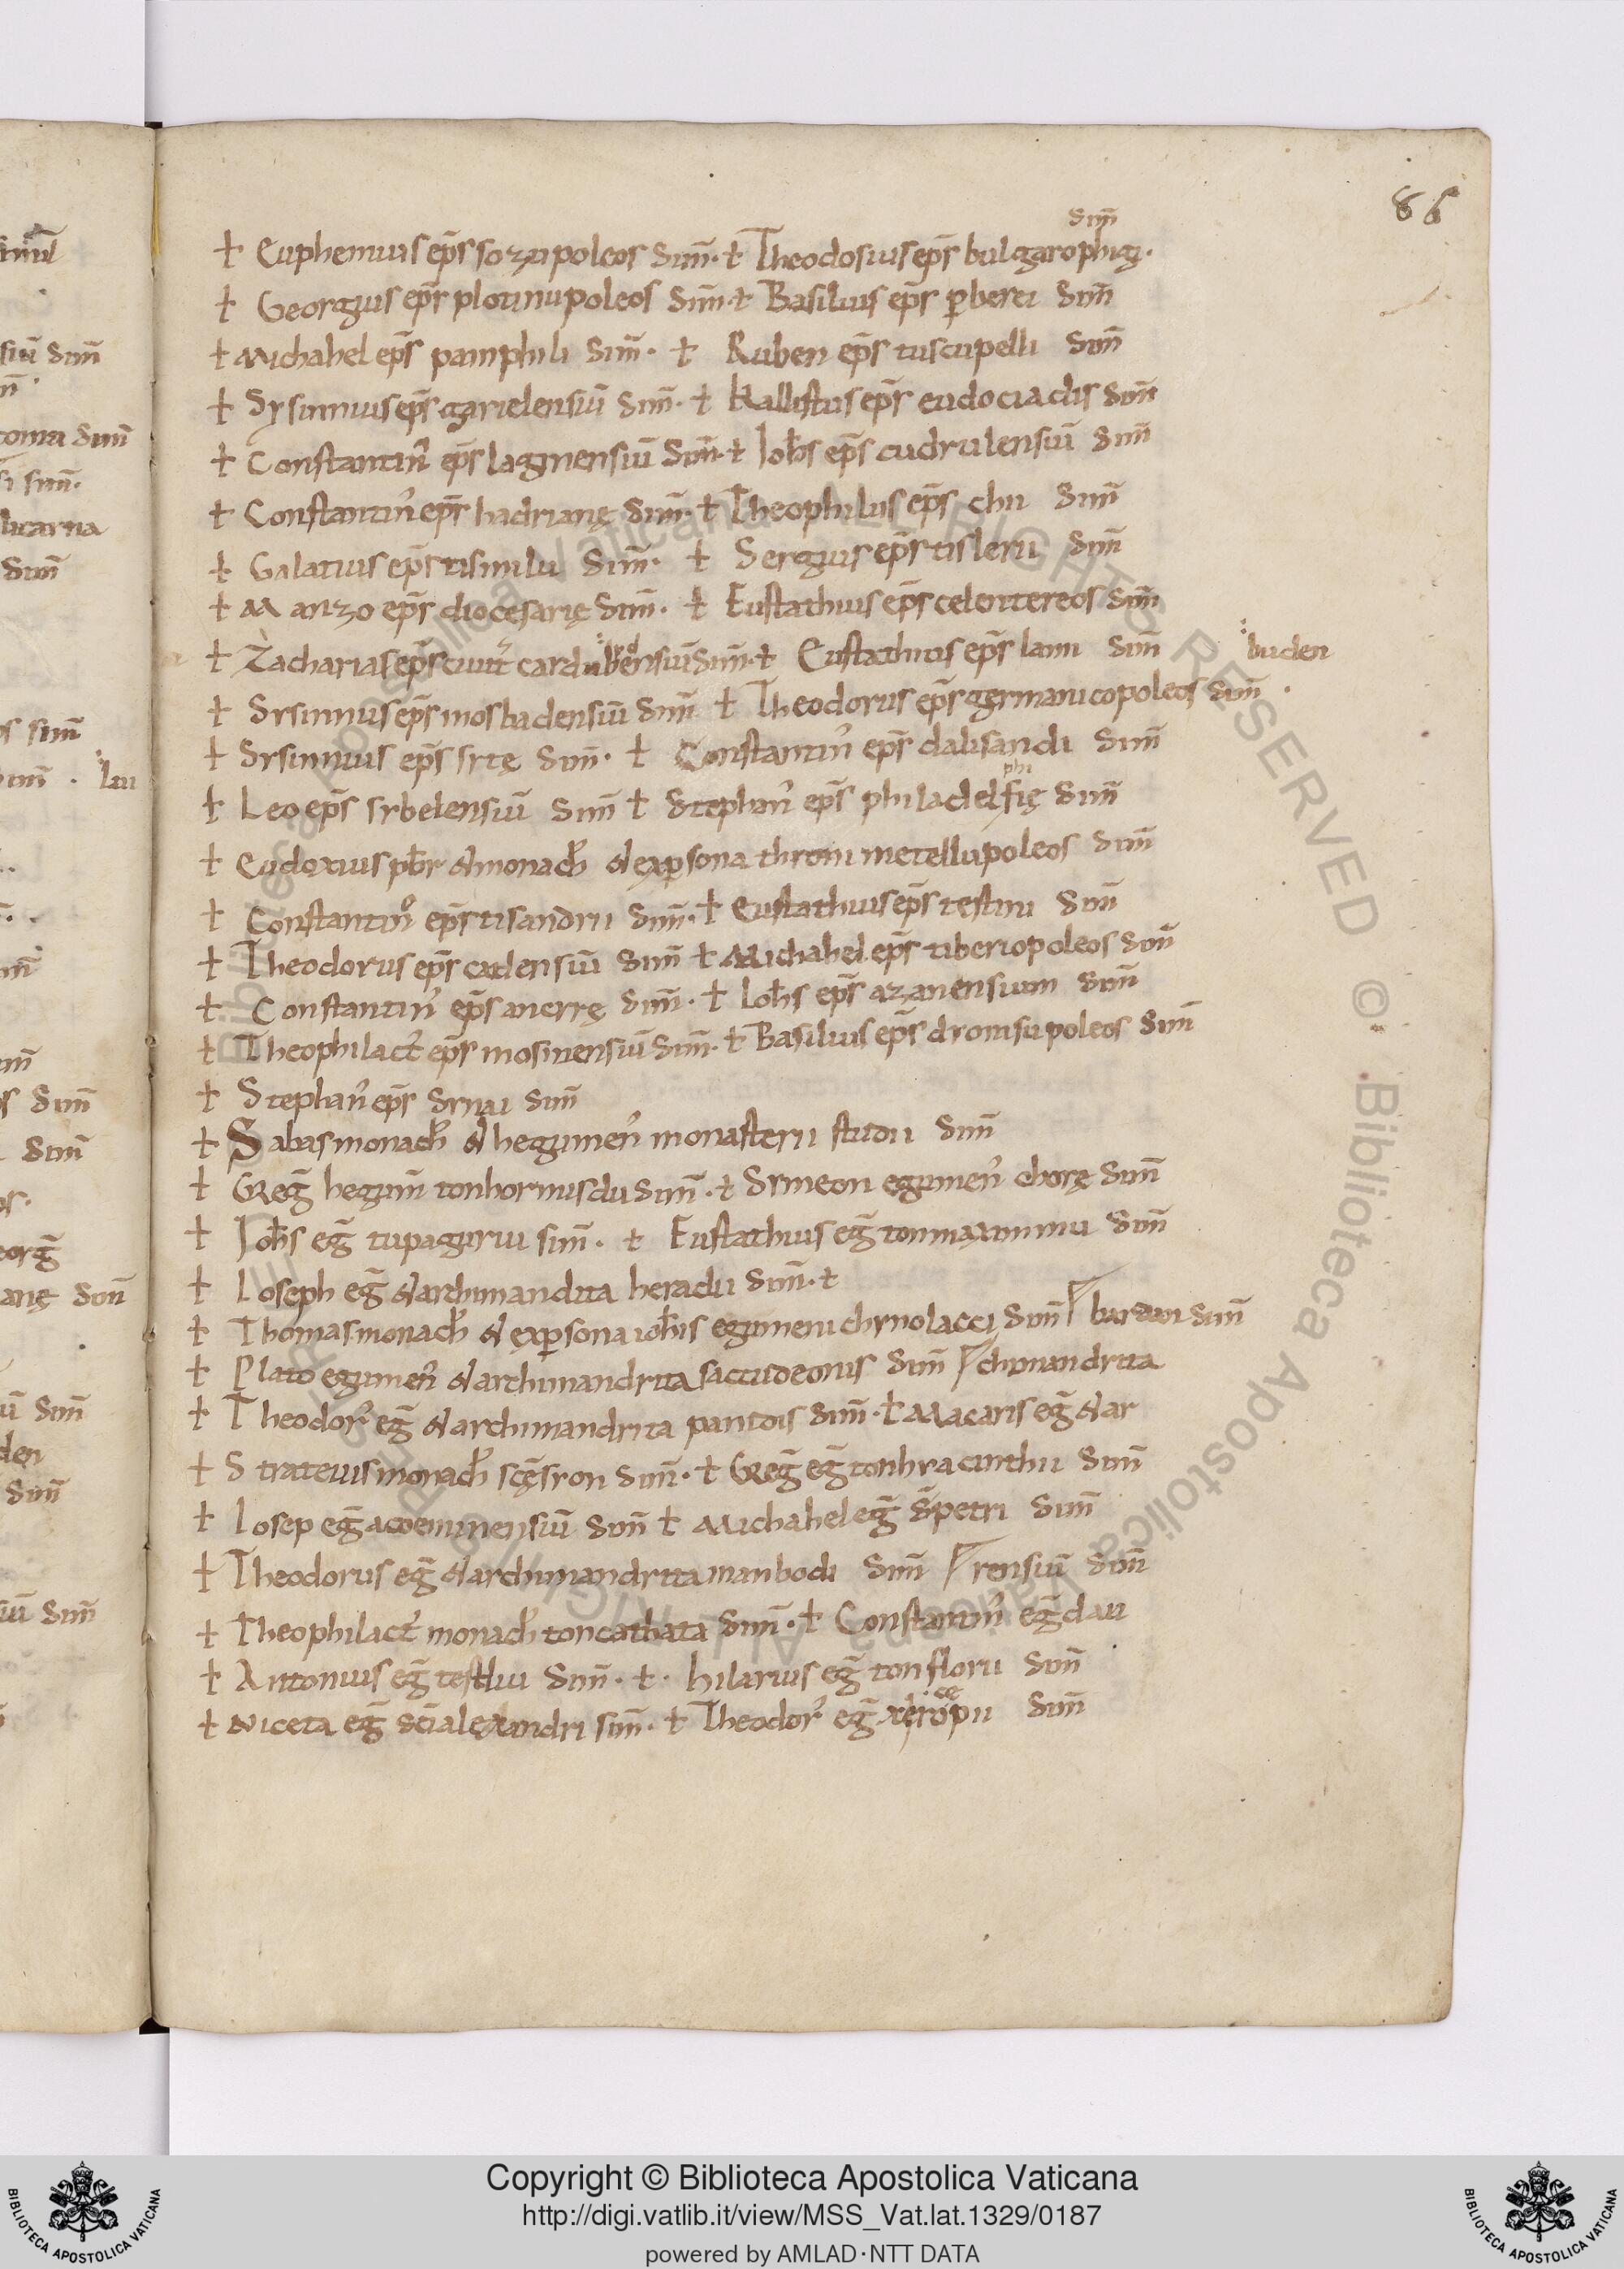 86
simt
✝ Euphemius ep̄s sozupoleos sim̄. ✝ Theodosius ep̄s bulgarophig.
✝ Georgius ep̄s plotinupoleos sim̄. ✝ Basilius ep̄s ꝑberei sim̄
✝ Michahel ep̄s pamphili sim̄. ✝ Ruben ep̄s tuscupelli sim̄
✝ Sysinnius ep̄s garielensiū sim̄. ✝ Kallistus ep̄s eudociadis sim̄
✝ Constantin᾽ ep̄s lagmensiū sim̄. ✝ Ioh̄s ep̄s cudrulensiū sim̄
✝ Constantin᾽ ep̄s hadrianę sim̄. ✝ Theophilus ep̄s chii sim̄
✝ Galatius ep̄s tisimilu sim̄. ✝ Sergius ep̄s tisleru sim̄
✝ Manzo ep̄s diocesarię sim̄. ✝ Eustathius ep̄s celentereos sim̄
✝ Zacharias ep̄s cardubensiū sim̄. ✝ Eustathius ep̄s lami sim̄ buden
✝ Srsinnius ep̄s mosbadensiū sim̄ ✝ Theodorus ep̄s germanicopoleos sim̄.
✝ Srsinnius ep̄s srtę sim̄. ✝ Constantin᾽ ep̄s dalisandi sim̄
phi
✝ Leo ep̄s srbelensiū sim̄ ✝ Stephan᾽ ep̄s philadelfię sim̄
✝ Eudoxius pb̄r & monach᾽ & ex ꝑsona throni metellupoleos sim̄
✝ Constantin᾽ ep̄s tisandru sim̄. ✝ Eustathius ep̄s testini sim̄
✝ Theodorus ep̄s cadensiū sim̄ ✝ Michahel ep̄s tiberiopoleos sim̄
✝ Constantin᾽ ep̄s anerrę sim̄. ✝ Ioh̄s ep̄s azanensium sim̄
✝ Theophilact᾽ ep̄s mosinensiū sim̄. ✝ Basilius ep̄s dronisupoleos sim̄
✝ Stephan᾽ ep̄s srnai sim̄
✝ Sabas monach᾽ & hegumen᾽ monasterii studii sim̄
✝ Greḡ hegum̄ tonhormisdu sim̄. ✝ Srmeon egumen᾽ chorę sim̄
✝ Ioh̄s eḡ tupaguriu sim̄. ✝ Eustathius eḡ tonmaximinu sim̄
✝ Ioseph eḡ & archimandita heradii sim̄. ✝
✝ Thomas monach᾽ & ex ꝑsona ioh̄is egumeni chynolacci sim̄ bardani sim̄
✝ Plato egumen᾽ & archimandrita saccudeonis sim̄ chimandrita
✝ Theodor᾽ eḡ & archimandrita pantois sim̄. ✝ Macaris eḡ & ar
✝ Strateius monach᾽ scęsron sim̄. ✝ Greḡ eḡ tonhracinthu sim̄
✝ Iosep eḡ acoeminensiū sim̄ ✝ Michahel eḡ s̄ petri sim̄
✝ Theodorus eḡ & archimandrita manbodi sim̄ rensiū sim̄
✝ Theophilact᾽ monach᾽ toncathata sim̄. ✝ Constantin᾽ eḡ dau
✝ Antonius eḡ testlui sim̄. ✝. hilarius eḡ ton floru sim̄
ce
✝ Niceta eḡ sc̄i alexandri sim̄. ✝ Theodor᾽ eḡ xeropii sim̄
Copyright © Biblioteca Apostolica Vaticana
http://digi.vatlib.it/view/MSS_Vat.lat.1329/0187
powered by AMLAD·NTT DATA
BIBLIOTECA APOSTOLICA VATICANA
BIBLIOTECA APOSTOLICA VATICANA